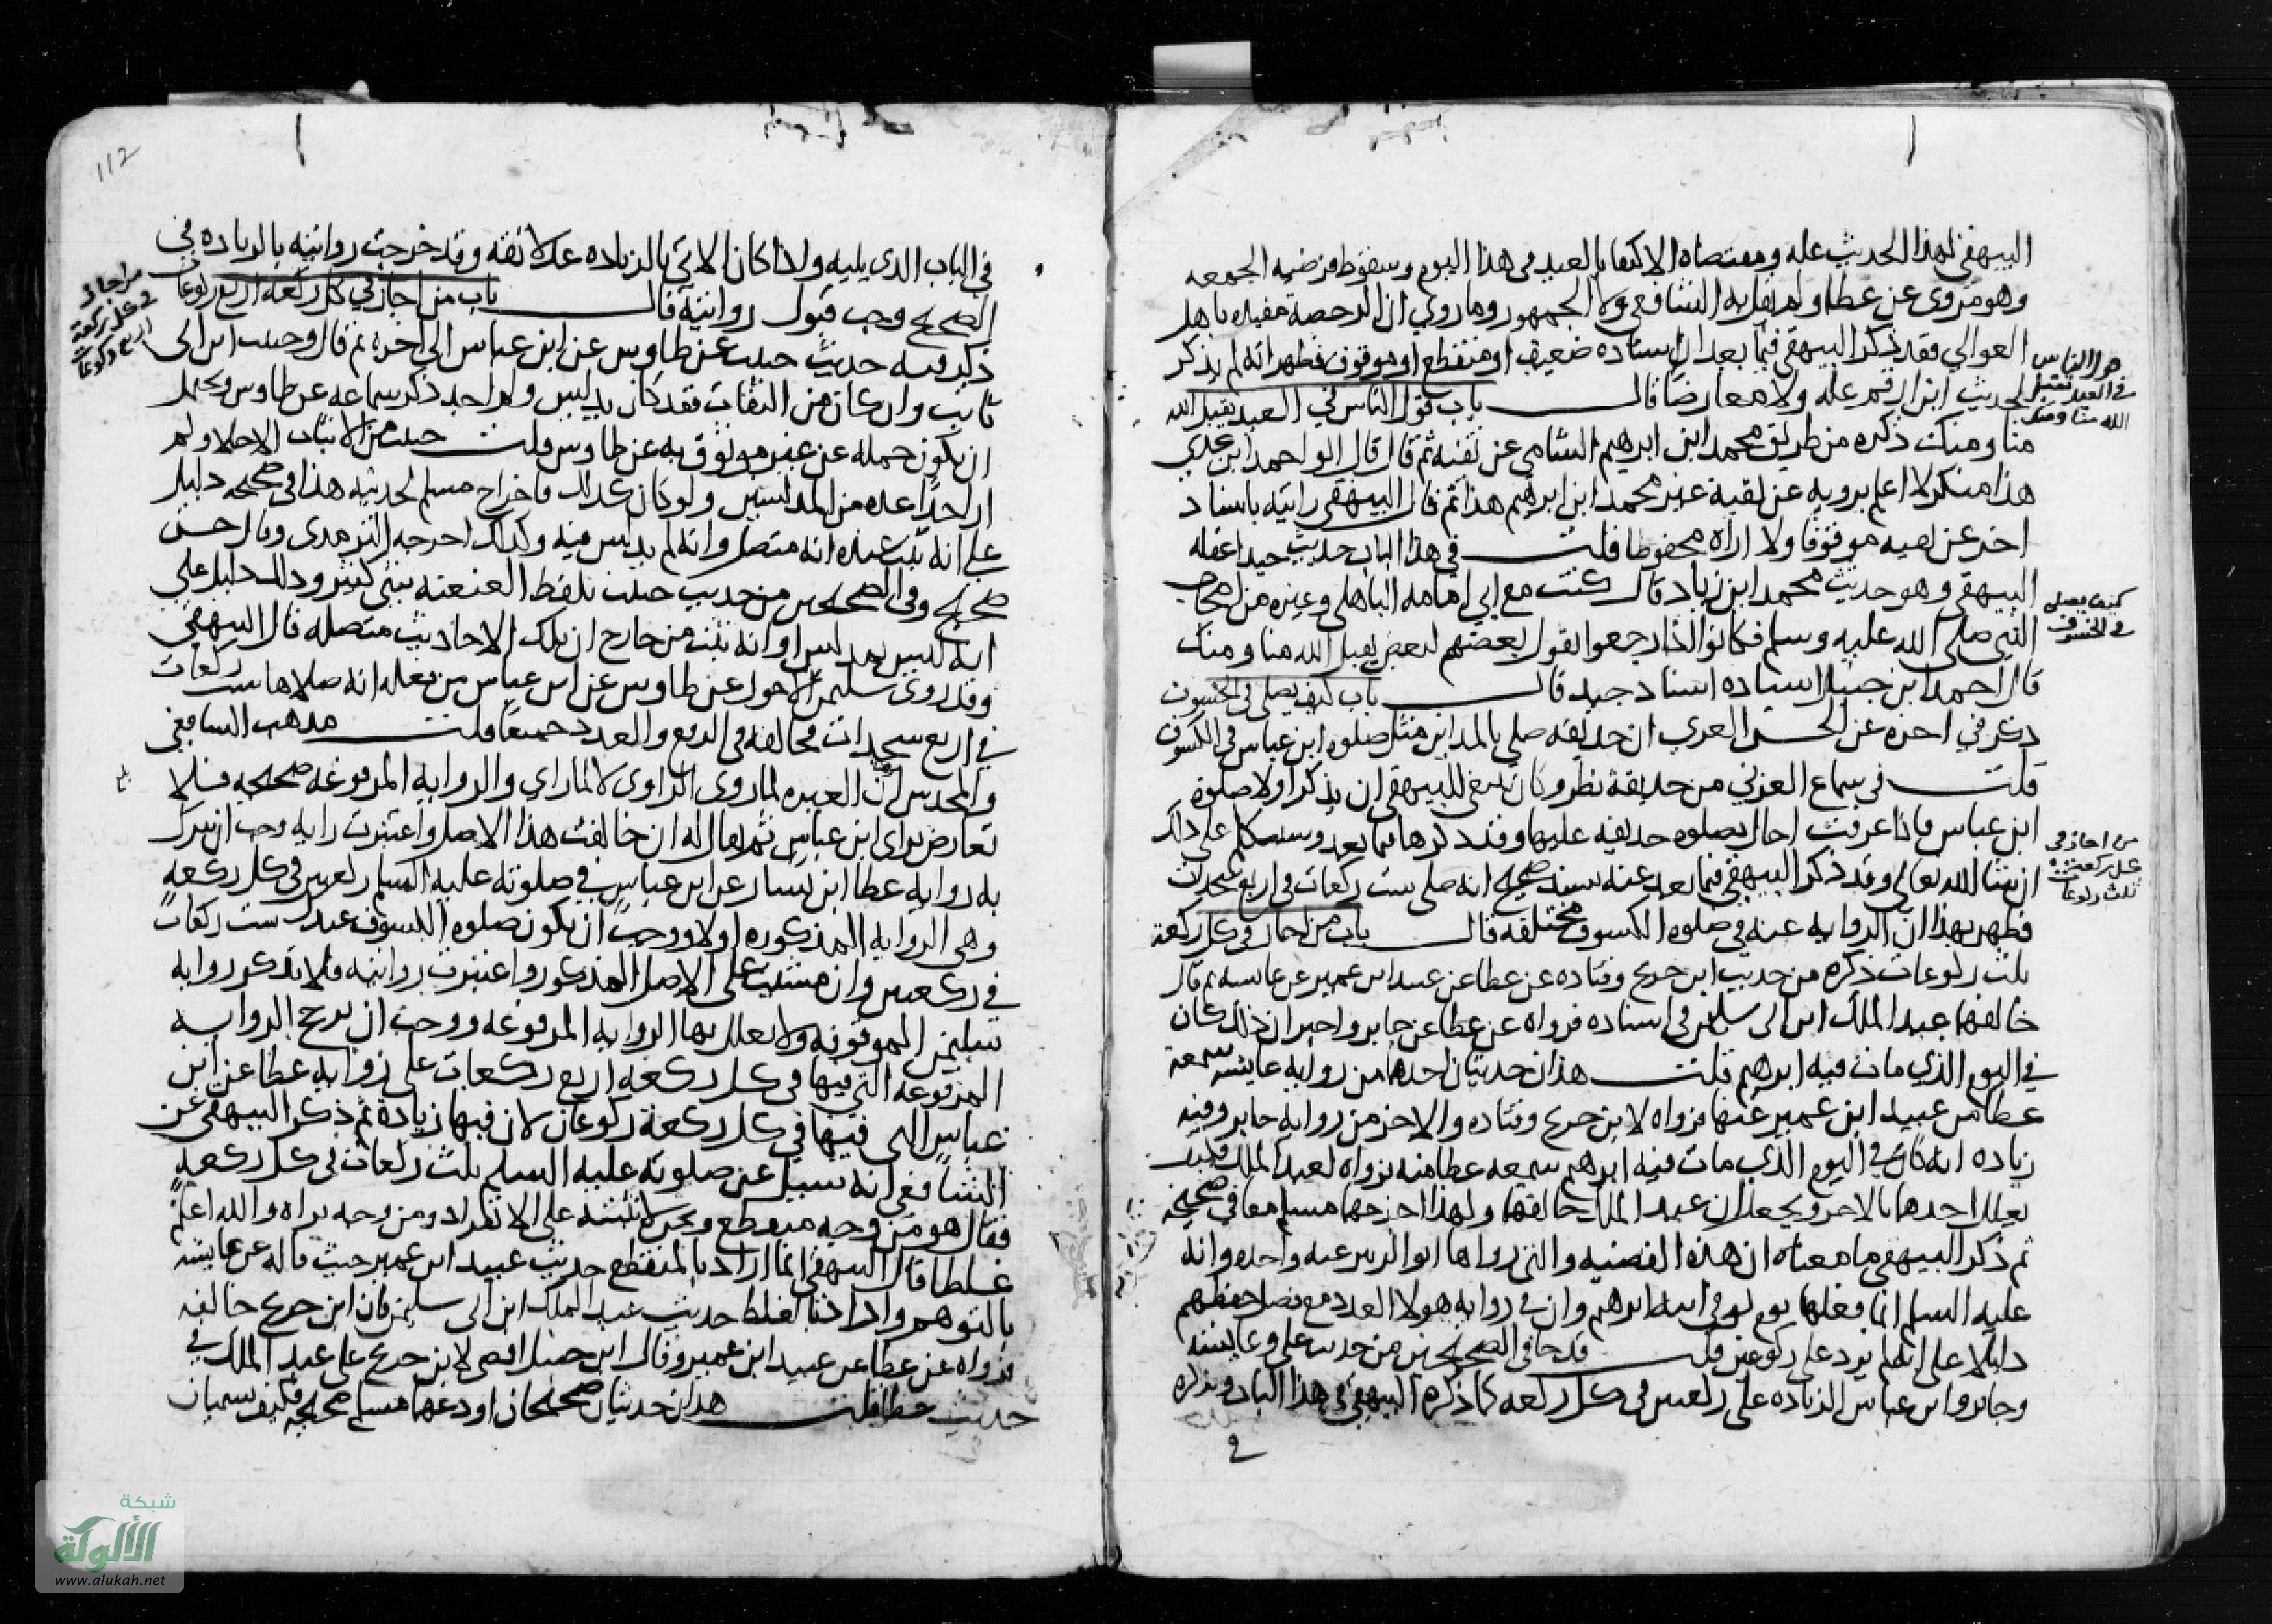 البيهقي لهذا الحديث عله ومقتضاه الاكتفا بالعيد في هذا اليوم وسقوط فرضيه الجمعه
وهو مروى عن عطا ولم يقل به الشافعي ولا الجمهور وما روي ان الرخصة مقيده باهل
العوالي فقد ذكر البيهقي فيما بعد ان اسناده ضعيف او منقطع او موقوف فظهر انه لم يذكر
لحديث ابن ارقم عله ولا معارضا قال باب قول الناس في العيد تقبل الله
منا ومنك ذكره من طريق محمد ابن ابرهيم الشامي عن بقية ثم قال قال ابو احمد ابن عدي
هذا منكر لا اعلم يرويه عن بقية غير محمد ابن ابرهيم هذا ثم قال البيهقي رايته باسناد
اخر عن بقيه موقوفا ولا اراه محفوظا قلت في هذا الباب حديث جيد اغفله
البيهقي وهو حديث محمد ابن زياد قال كنت مع ابي امامه الباهلي وغيره من اصحاب
النبي صلى الله عليه وسلم فكانوا اذا رجعوا يقول بعضهم لبعض يقبل الله منا ومنك
قال احمد ابن حنبل اسناده اسناد جيد قال باب كيف يصلي في الخسوف
ذكر في اخره عن الحسن العرني ان حذيفه صلى بالمداين مثل صلوه ابن عباس في الكسوف
قلت في سماع العرني من حذيفة نظر وكان ينبغي للبيهقي ان يذكر اولا صلوة
ابن عباس فاذا عرفت احال بصلوه حذيفه عليها وقد ذكرها فيما بعد وسنتكلم على ذلك
ان شا الله تعالى وقد ذكر البيهقي فيما بعد عنه بسند صحيح انه صلى ست ركعات في اربع سجدات
فظهر بهذا ان الروايه عنه في صلوه الكسوف مختلفه قال باب من اجاز في كل ركعة
ثلث ركوعات ذكره من حديث ابن جريج وقتاده عن عطا عن عبيد ابن عمير عن عايشه ثم قال
خالفهما عبد الملك ابن ابي سليمن في اسناده فرواه عن عطا عن جابر واخبر ان ذلك كان
في اليوم الذي مات فيه ابرهيم قلت هذان حديثان احدهما من روايه عايشه سمعه
عطا من عبيد ابن عمير عنها فرواه لابن جريج وقتاده والاخر من روايه جابر وفيه
زياده انه كان في اليوم الذي مات فيه ابرهيم سمعه عطا منه فرواه لعبد الملك فكيف
يعلل احدهما بالاخر ويجعل ان عبد الملك خالفهما ولهذا اخرجهما مسلم معا في صحيحه
ثم ذكر البيهقي ما معناه ان هذه القضيه والتي رواها ابو الزبير عنه واحده وانه
عليه السلام انما فعلها يوم توفي ابنه ابرهيم وان في روايه هولا العدد مع فضل حفظهم
دليلا على انه لم يزد على ركوعين قلت قد جا في الصحيحين من حديث علي وعايشه
وجابر وابن عباس الزياده على ركعتين في كل ركعه كما ذكره البيهقي في هذا الباب وبذكره
في
قول الناس
في العيد تقبل
الله منا ومنك
كيف يصلى
في الخسوف
من اجاز في
كل ركعة
ثلث ركوعات
112
في الباب الذي يليه ولذا كان الاتي بالزياده عدلا ثقه وقد خرجت روايته بالزياده في
الصحيح وجب قبول روايته قال باب من اجاز في كل ركعه اربع ركوعات
ذكر فيه حديث حبيب عن طاوس عن ابن عباس الى اخره ثم قال وحبيب ابن ابي
ثابت وان كان من الثقات فقد كان يدلس ولم اجد ذكر سماعه عن طاوس ويحتمل
ان يكون حمله عن غير موثوق به عن طاوس قلت حبيب من الاثبات الاجلا ولم
ار احدا عده من المدلسين ولو كان كذلك فاخراج مسلم لحديثه هذا في صحيحه دليل
على انه ثبت عنده انه متصل وانه لم يدلس فيه وكذلك اخرجه الترمذى وقال حسن
صحيح وفي الصحيحين من حديث حبيب بلفظ العنعنه شي كثير وذلك دليل على
انه ليس بمدلس او انه ثبت من خارج ان تلك الاحاديث متصله قال البيهقي
وقد روى سليمن الاحول عن طاوس عن ابن عباس من فعله انه صلاها ست ركعات
في اربع سجدات فخالفه في الرفع والعدد جميعا قلت مذهب الشافعي
والمحدثين ان العبره لما روى الراوى لا لما راي والروايه المرفوعه صحيحه فلا
تعارض براي ابن عباس ثم يقال له ان خالفت هذا الاصل واعتبرت رايه وجب ان تترك
به روايه عطا ابن يسار عن ابن عباس في صلوته عليه السلم ركعتين في كل ركعه
وهي الروايه المذكوره اولا ووجب ان يكون صلوه الكسوف عندك ست ركعات
في ركعتين وان مشيت على الاصل المذكور واعتبرت روايته فلا تذكر روايه
سليمن الموقوفه ولا تعلل بها الروايه المرفوعه ووجب ان ترجح الروايه
المرفوعه التي فيها في كل ركعه اربع ركعات على روايه عطا عن ابن
عباس التي فيها في كل ركعة ركوعان لان فيها زياده ثم ذكر البيهقي عن
الشافعي انه سيل عن صلوته عليه السلم ثلث ركعات في كل ركعه
فقال هو من وجه منقطع ونحن لا نثبته على الانفراد ومن وجه نراه والله اعلم
غلطا قال البيهقي انما اراد بالمنقطع حديث عبيد ابن عمير حيث قاله عن عايشه
بالتوهم واراد بالغلط حديث عبد الملك ابن ابي سليمن فان ابن جريج خالفه
فرواه عن عطا عن عبيد ابن عمير وقال ابن حنبل اقضى لابن جريج على عبد الملك في
حديث عطا قلت هذان حديثان صحيحان اودعهما مسلم صحيحه فكيف يسميان
من اجاز
في كل ركعة
اربع ركوعات
شبكة
الألوكة
www.alukah.net